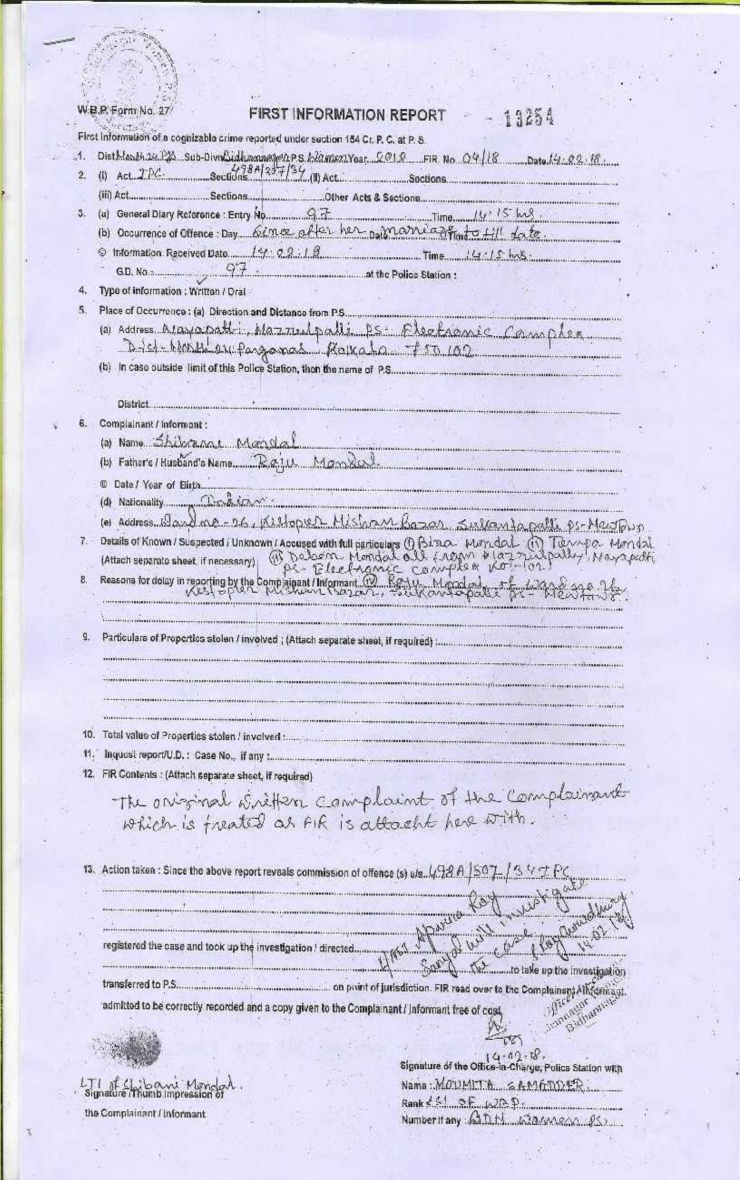 W.B.P. Form No. 27
FIRST INFORMATION REPORT
- 13254
First Information of a cognizable crime reported under section 154 Cr. P. C. at P. S.
1. Dist North 24 Pgs Sub-Divn Bidhannagar P.S. Women Year 2018 FIR No 04/18 Date 14-02-18.
2. (i) Act IPC Sections 498A/307/34 (ii) Act Sections
(iii) Act Sections Other Acts & Sections
3. (a) General Diary Reference : Entry No 97 Time 14-15 hrs.
(b) Occurrence of Offence : Day Since after her marriage to till date.
© Information Received Date 14-02-18 Time 14:15 hrs.
G.D. No.: 97 at the Police Station :
4. Type of information : Written / Oral
5. Place of Occurrence : (a) Direction and Distance from P.S.
(a) Address Nayapatti, Nazrulpalli PS- Electronic Complex
Dist- North 24 Parganas, Kolkata 700102
(b) In case outside limit of this Police Station, then the name of P.S
District
6. Complainant / Informant :
(a) Name Shibani Mondal
(b) Father's / Husband's Name Raju Mondal
© Date / Year of Birth
(d) Nationality Indian.
(e) Address Ward no-26, Kestopier Mishan Bazar, Sukantapalli ps-NewTown
7. Details of Known / Suspected / Unknown / Accused with full particulars (i) Bina Mondal (ii) Tempa Mondal
(Attach separate sheet, if necessary) (iii) Debom Mondal all from Nazrulpally, Nayapatti
ps- Electronic complex Kol-102.
8. Reasons for delay in reporting by the Complainant / Informant (iv) Raju Mondal of ward no 26
Kestopier Mishan Bazar, Sukantapalli ps- Newtown.
9. Particulars of Properties stolen / involved ; (Attach separate sheet, if required) :
10. Total value of Properties stolen / involved :
11. Inquest report/U.D. : Case No., if any :
12. FIR Contents : (Attach separate sheet, if required)
The original written complaint of the Complainant
which is treated as FIR is attacht here with.
13. Action taken : Since the above report reveals commission of offence (s) u/s. 498A/307/34 IPC
Aparna Roy
Sanyal will investigate
the case.
14-02-18
registered the case and took up the investigation / directed
to take up the investigation
transferred to P.S. on point of jurisdiction. FIR read over to the Complainant / Informant,
admitted to be correctly recorded and a copy given to the Complainant / Informant free of cost
Bidhannagar
14-02-18.
Signature of the Office-in-Charge, Police Station with
LTI of Shibani Mondal.
Name : MOUMITA SAMADDER.
Signature /Thumb Impression of
Rank LSI OF WBP.
the Complainant / Informant
Number if any : BDN Women PS.